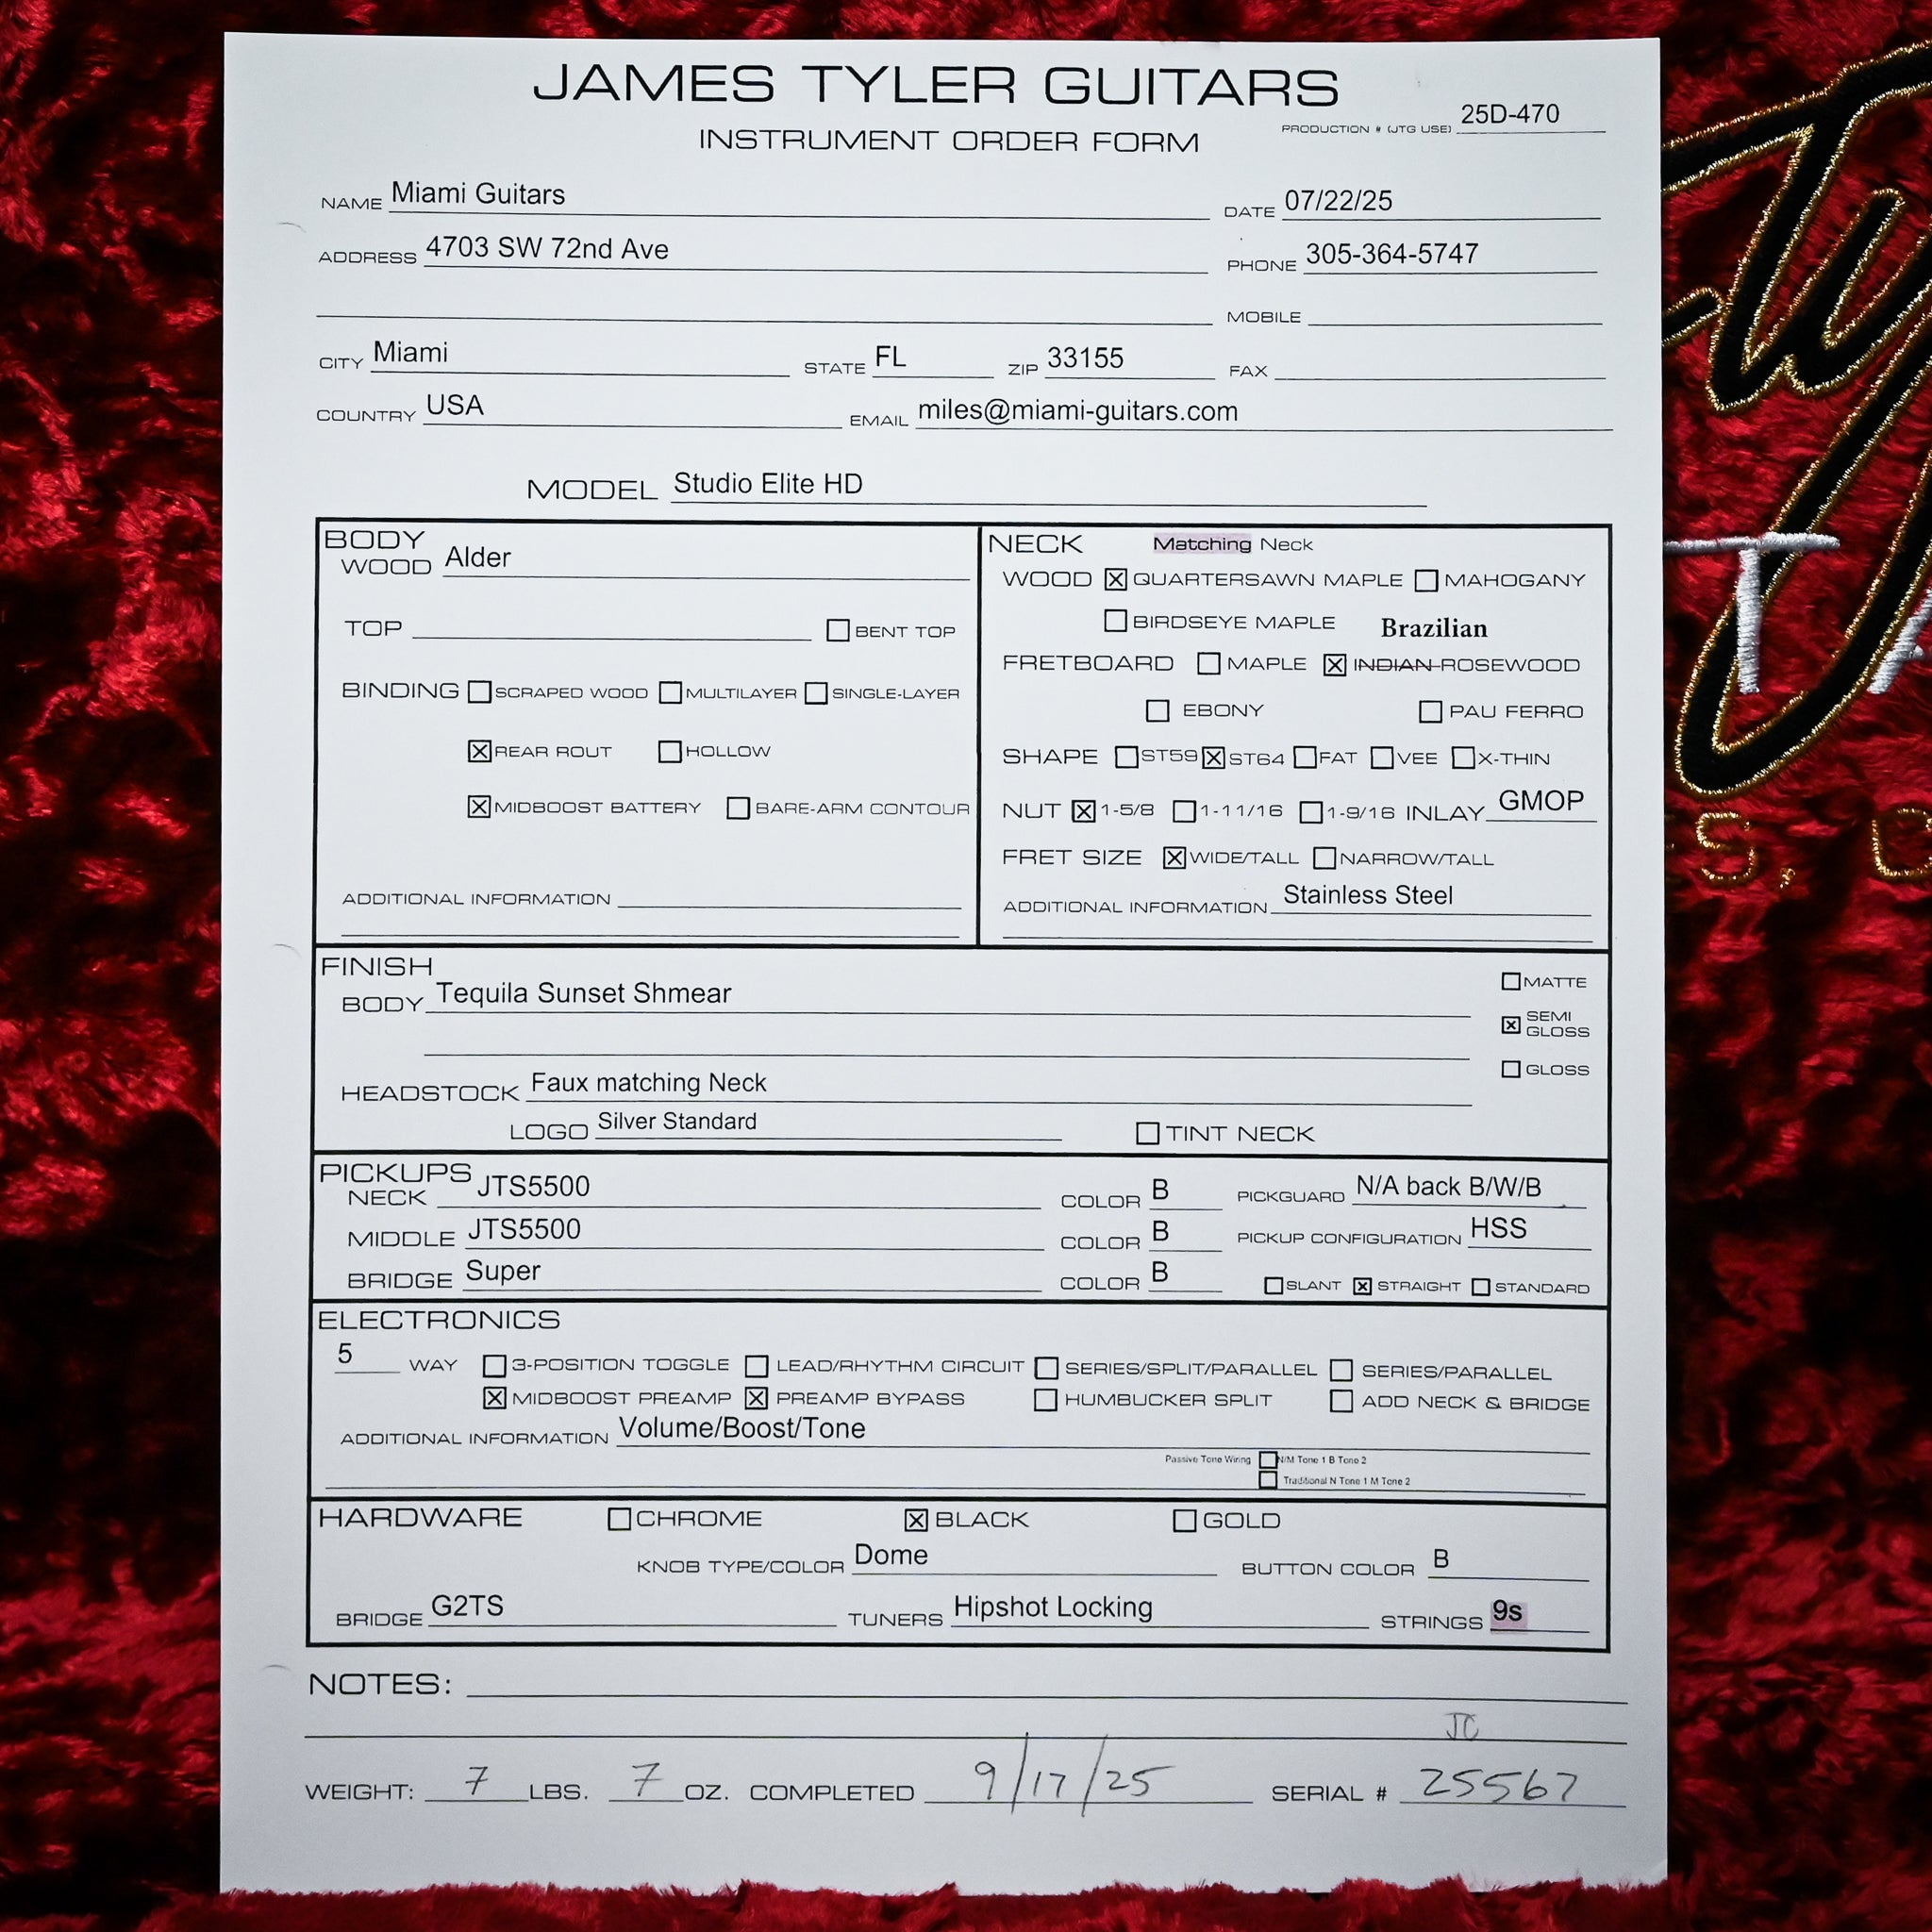 JAMES TYLER GUITARS
INSTRUMENT ORDER FORM
PRODUCTION # (JTG USE) 25D-470
NAME Miami Guitars DATE 07/22/25
ADDRESS 4703 SW 72nd Ave PHONE 305-364-5747
MOBILE
CITY Miami STATE FL ZIP 33155 FAX
COUNTRY USA EMAIL miles@miami-guitars.com
MODEL Studio Elite HD
BODY
WOOD Alder
TOP BENT TOP
BINDING SCRAPED WOOD MULTILAYER SINGLE-LAYER
REAR ROUT HOLLOW
MIDBOOST BATTERY BARE-ARM CONTOUR
ADDITIONAL INFORMATION
NECK Matching Neck
WOOD QUARTERSAWN MAPLE MAHOGANY
BIRDSEYE MAPLE Brazilian
FRETBOARD MAPLE INDIAN ROSEWOOD
EBONY PAU FERRO
SHAPE ST59 ST64 FAT VEE X-THIN
NUT 1-5/8 1-11/16 1-9/16 INLAY GMOP
FRET SIZE WIDE/TALL NARROW/TALL
ADDITIONAL INFORMATION Stainless Steel
FINISH
BODY Tequila Sunset Shmear
MATTE
SEMI GLOSS
GLOSS
HEADSTOCK Faux matching Neck
LOGO Silver Standard TINT NECK
PICKUPS
NECK JTS5500 COLOR B PICKGUARD N/A back B/W/B
MIDDLE JTS5500 COLOR B PICKUP CONFIGURATION HSS
BRIDGE Super COLOR B SLANT STRAIGHT STANDARD
ELECTRONICS
5 WAY 3-POSITION TOGGLE LEAD/RHYTHM CIRCUIT SERIES/SPLIT/PARALLEL SERIES/PARALLEL
MIDBOOST PREAMP PREAMP BYPASS HUMBUCKER SPLIT ADD NECK & BRIDGE
ADDITIONAL INFORMATION Volume/Boost/Tone
Passive Tone Wiring N/M Tone 1 B Tone 2
Traditional N Tone 1 M Tone 2
HARDWARE CHROME BLACK GOLD
KNOB TYPE/COLOR Dome BUTTON COLOR B
BRIDGE G2TS TUNERS Hipshot Locking STRINGS 9s
NOTES:
JC
WEIGHT: 7 LBS. 7 OZ. COMPLETED 9/17/25 SERIAL # 25567